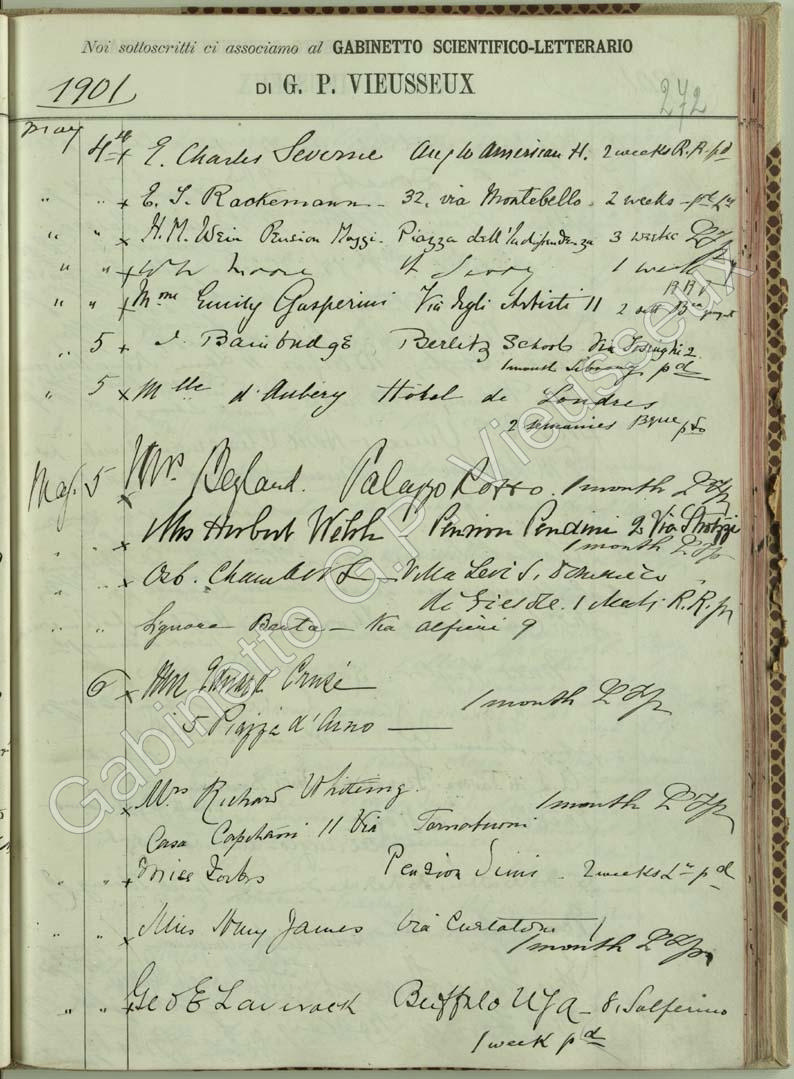 Noi sottoscritti ci associamo al GABINETTO SCIENTIFICO-LETTERARIO
1901 DI G. P. VIEUSSEUX
272
May 4th + E. Charles Severne Anglo American H. 2 weeks R.R. pd
" " + E. S. Rackemann - 32, via Montebello - 2 weeks -
" " x H. M. Wein Pension Maggi - Piazza dell'Indipendenza 3 weeks
" " + Moore 1 week
" " + Mme Emily Gasperini Via degli Artisti 11 2 sett
" 5 + J. Bainbridge Berlitz Schools Via Tosinghi 2.
1 month pd
" 5 x Mlle d'Aubéry Hôtel de Londres
2 semaines
May. 5 x Mrs Begland. Palazzo Rosso. 1 month
" " x Mrs Herbert Welsh Pension Pendini 2 Via Strozzi
1 month
" " Villa Levi S. Domenico
di Fiesole. R.R. p
" " Signora - Via Alfieri 9
6 x
15 Piazza d'Arno — 1 month
x Mrs Richard Whiteing. 1 month
Casa 11 Via Tornabuoni
" " + Miss Forbes Pension Simi - 2 weeks pd
" " x Miss Mary James Via Curtatone 1
1 month
" " + Geo E Laverack Buffalo USA - 8, Solferino
1 week pd
Gabinetto G.P. Vieusseux